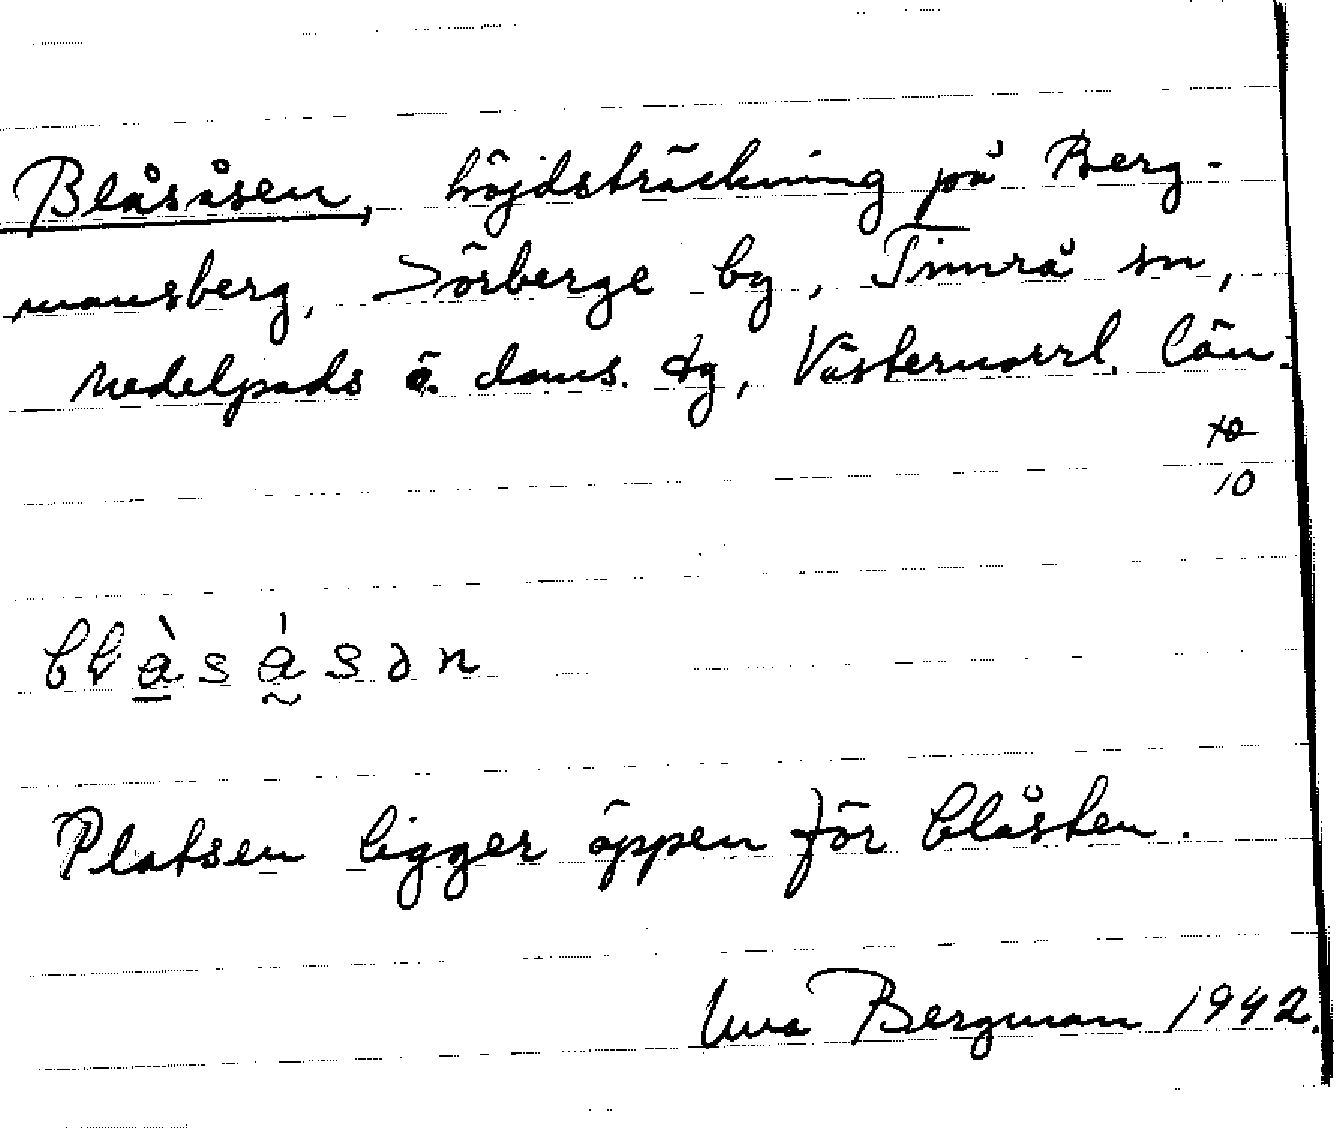 Blåsåsen, höjdsträckning på Berg-
mansberg, Sörberge by, Timrå sn,
Medelpads ö. doms. tg, Västernorrl. län.
10
Platsen ligger öppen för blåsten.
Bergman 1942.